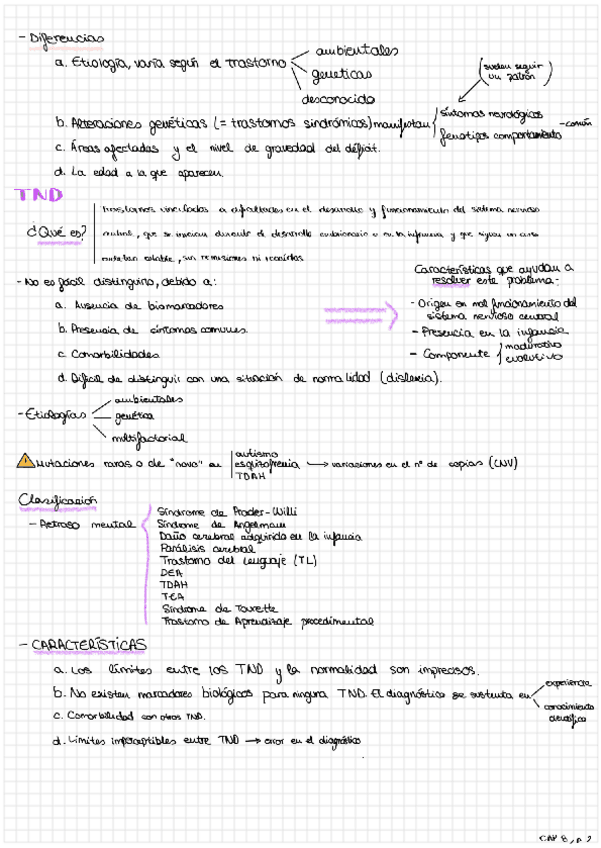 - Diferencias
a. Etiología, varía según el trastorno
ambientales
genéticas
desconocido
(suelen seguir
un patrón)
b. Alteraciones genéticas (= trastornos sindrómicos) manifiestan
síntomas neurológicos
fenotipos comportamiento
- común
c. Áreas afectadas y el nivel de gravedad del déficit.
d. La edad a la que aparecen.
TND
¿Qué es?
trastornos vinculados a dificultades en el desarrollo y funcionamiento del sistema nervioso
que se inician durante el desarrollo embrionario o en la infancia y que siguen un curso
estable, sin remisiones ni recaídas
- No es fácil distinguirlo, debido a:
a. Ausencia de biomarcadores
b. Presencia de síntomas comunes.
c. Comorbilidades
d. Difícil de distinguir con una situación de normalidad (dislexia).
Características que ayudan a
resolver este problema.
- Origen en mal funcionamiento del
sistema nervioso central
- Presencia en la infancia
- Componente
madurativo
evolutivo
- Etiologías
ambientales
genética
multifactorial
Mutaciones raras o de "novo" en
autismo
esquizofrenia
TDAH
variaciones en el nº de copias (CNV)
Clasificación
- Retraso mental
Síndrome de Prader-Willi
Síndrome de Angelmann
Daño cerebral adquirido en la infancia
Parálisis cerebral
Trastorno del lenguaje (TL)
DEA
TDAH
TEA
Síndrome de Tourette
Trastorno de Aprendizaje procedimental
- CARACTERÍSTICAS
a. Los límites entre los TND y la normalidad son imprecisos.
b. No existen marcadores biológicos para ninguna TND. El diagnóstico se sustenta en
experiencia
conocimiento
científico
c. Comorbilidad con otros TND.
d. Límites imperceptibles entre TND → error en el diagnóstico
CAP 8, p. 2